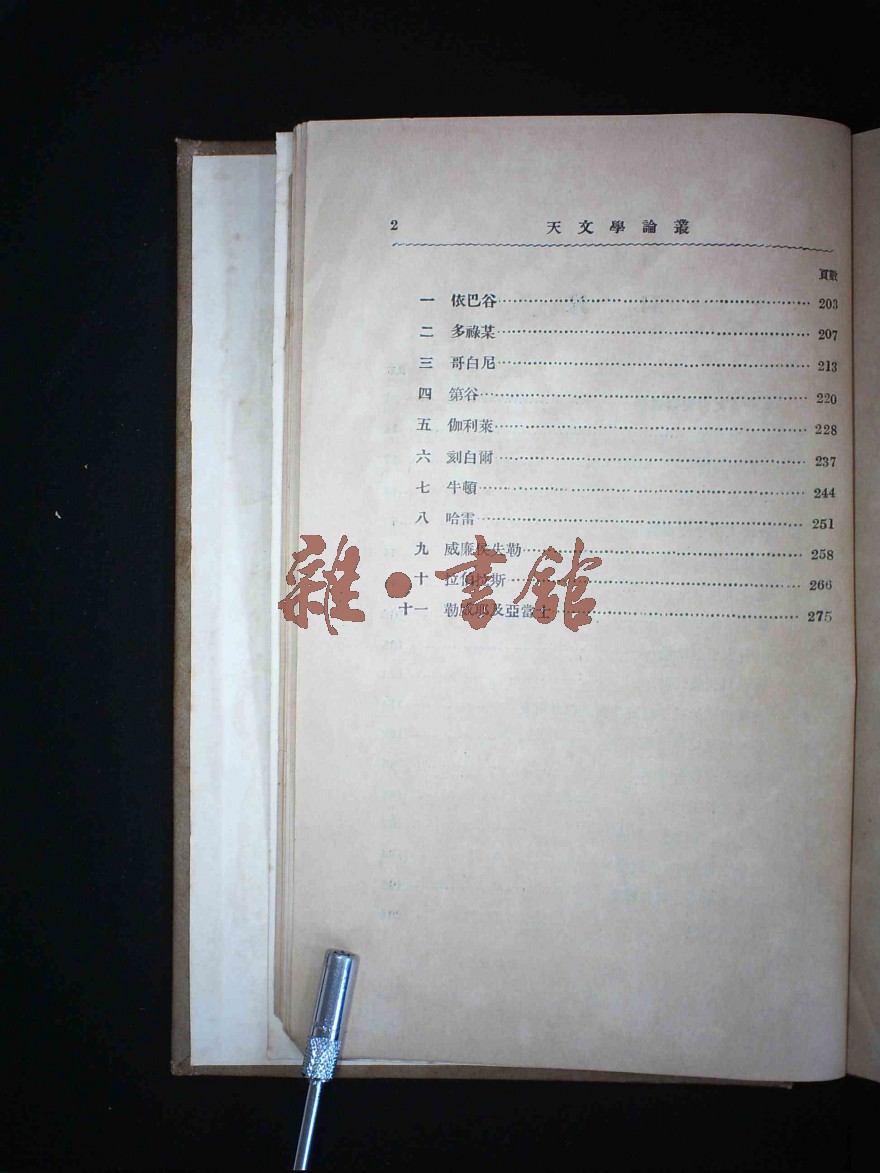 2 天文學論叢
頁數
一 依巴谷 203
二 多祿某 207
三 哥白尼 213
四 第谷 220
五 伽利萊 228
六 刻白爾 237
七 牛頓 244
八 哈雷 251
九 威廉侯失勒 258
十 拉伯拉斯 266
十一 勒威耶及亞當士 275
雜·書館